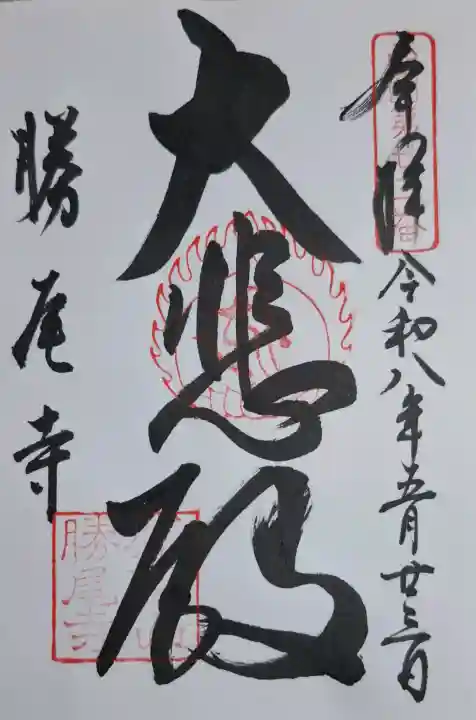 奉拝 令和八年五月廿三日
大悲殿
勝尾寺
勝尾寺